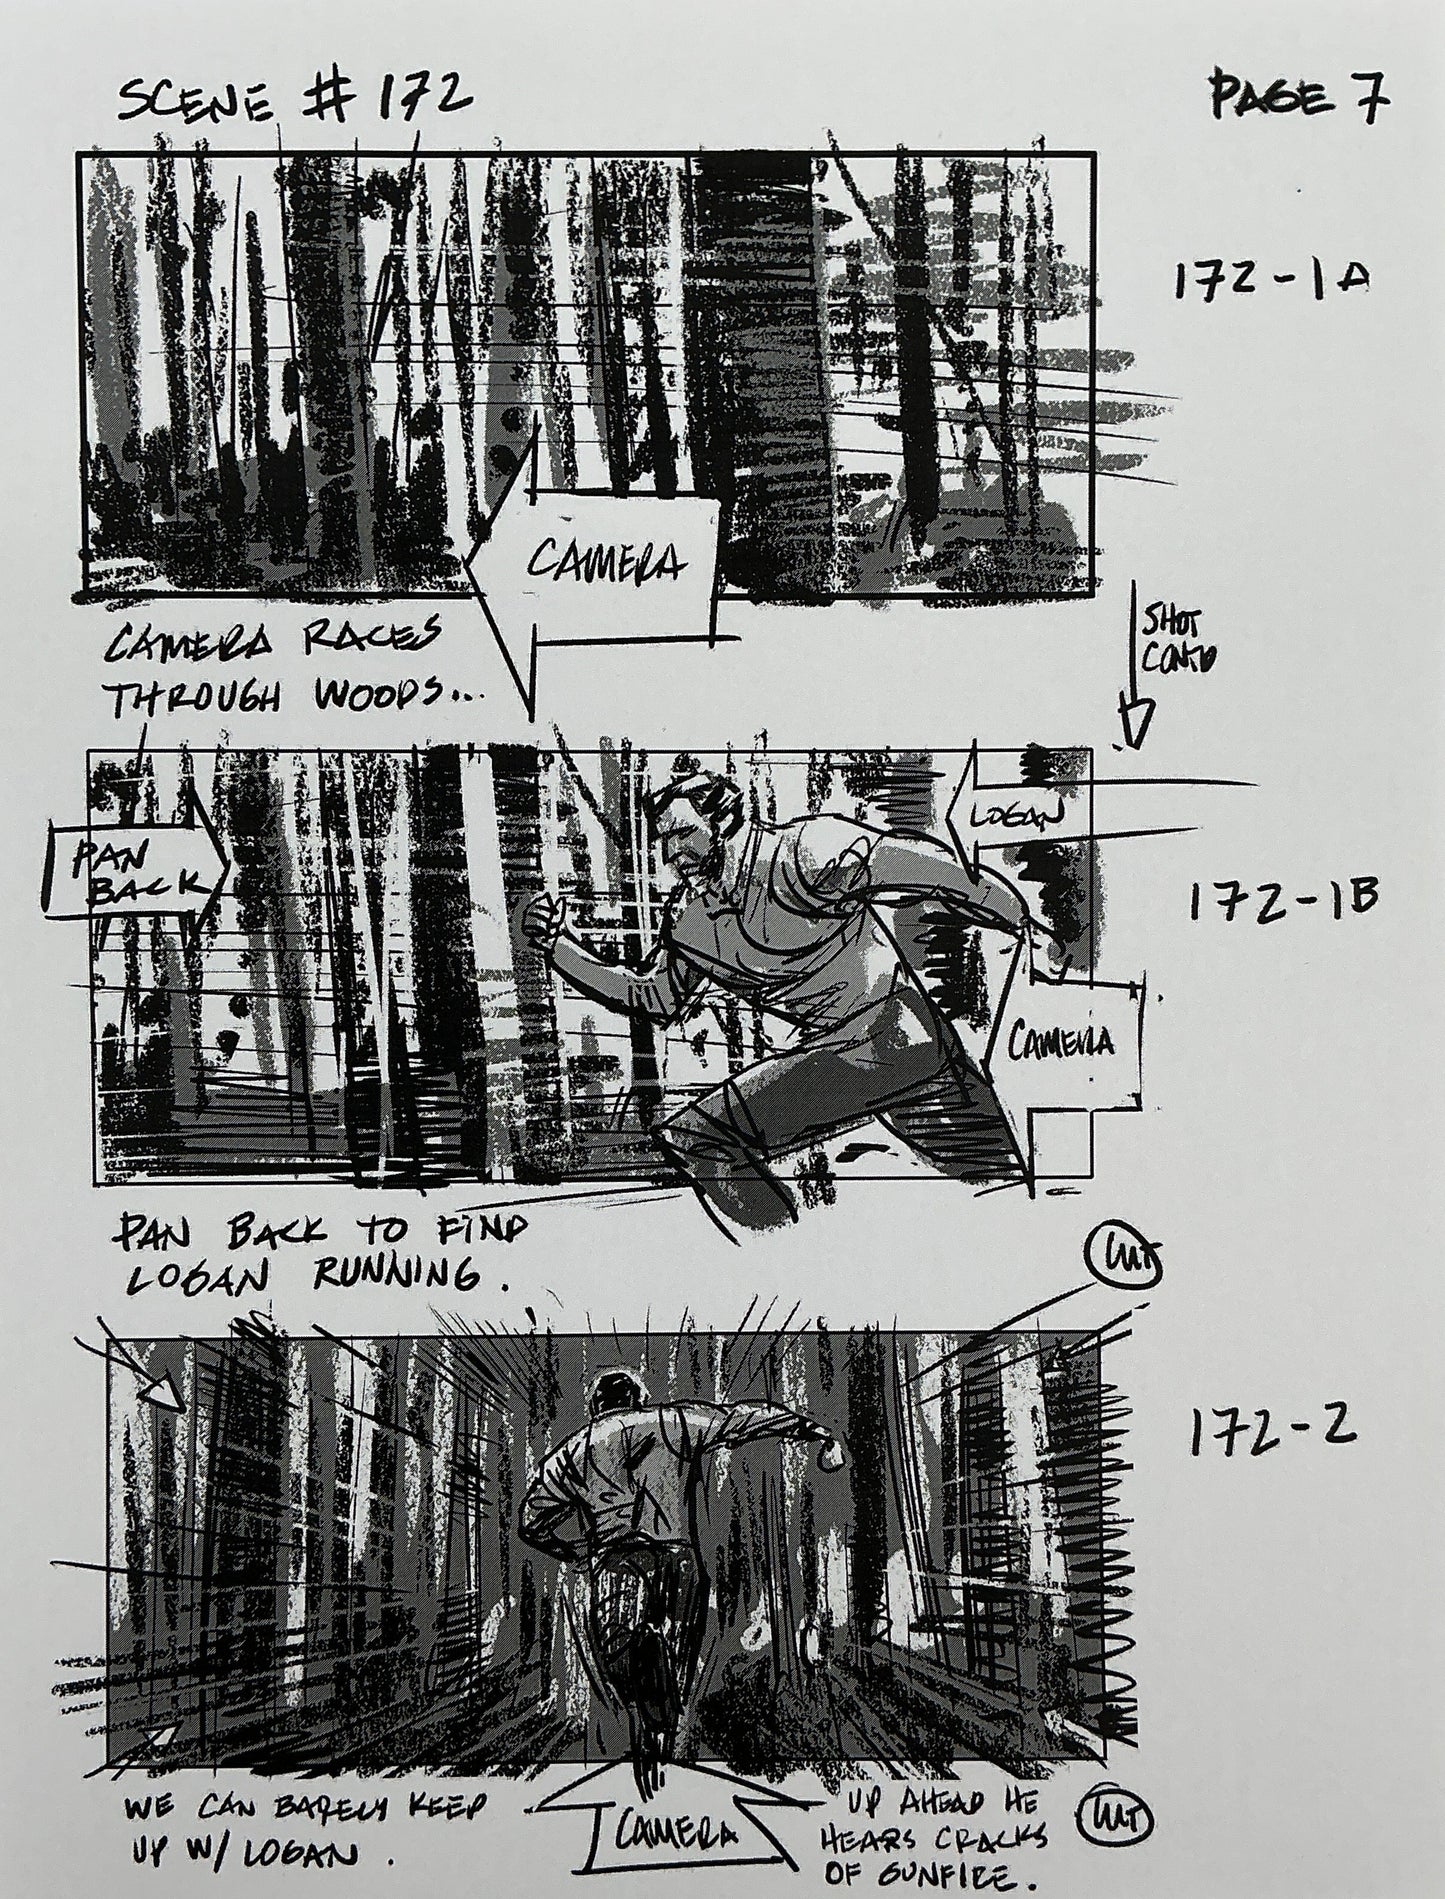 SCENE # 172
PAGE 7
172-1A
CAMERA
CAMERA RACES
THROUGH WOODS...
SHOT
CONT'D
PAN
BACK
LOGAN
172-1B
CAMERA
PAN BACK TO FIND
LOGAN RUNNING.
CUT
172-2
WE CAN BARELY KEEP
UP W/ LOGAN.
CAMERA
UP AHEAD HE
HEARS CRACKS
OF GUNFIRE.
CUT